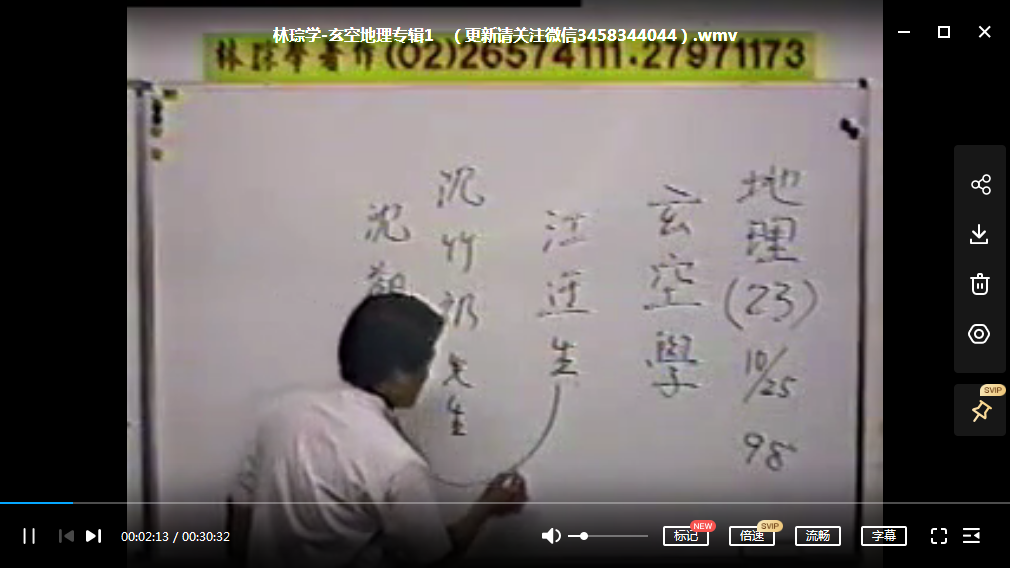 林琮学-玄空地理专辑1 （更新请关注微信3458344044）.wmv
林琮學著作(02)26574111.27971173
地理(23)10/25 98
玄空學
江迋生
沉竹礽先生
沈
SVIP
00:02:13 / 00:30:32
标记
NEW
倍速
SVIP
流畅
字幕